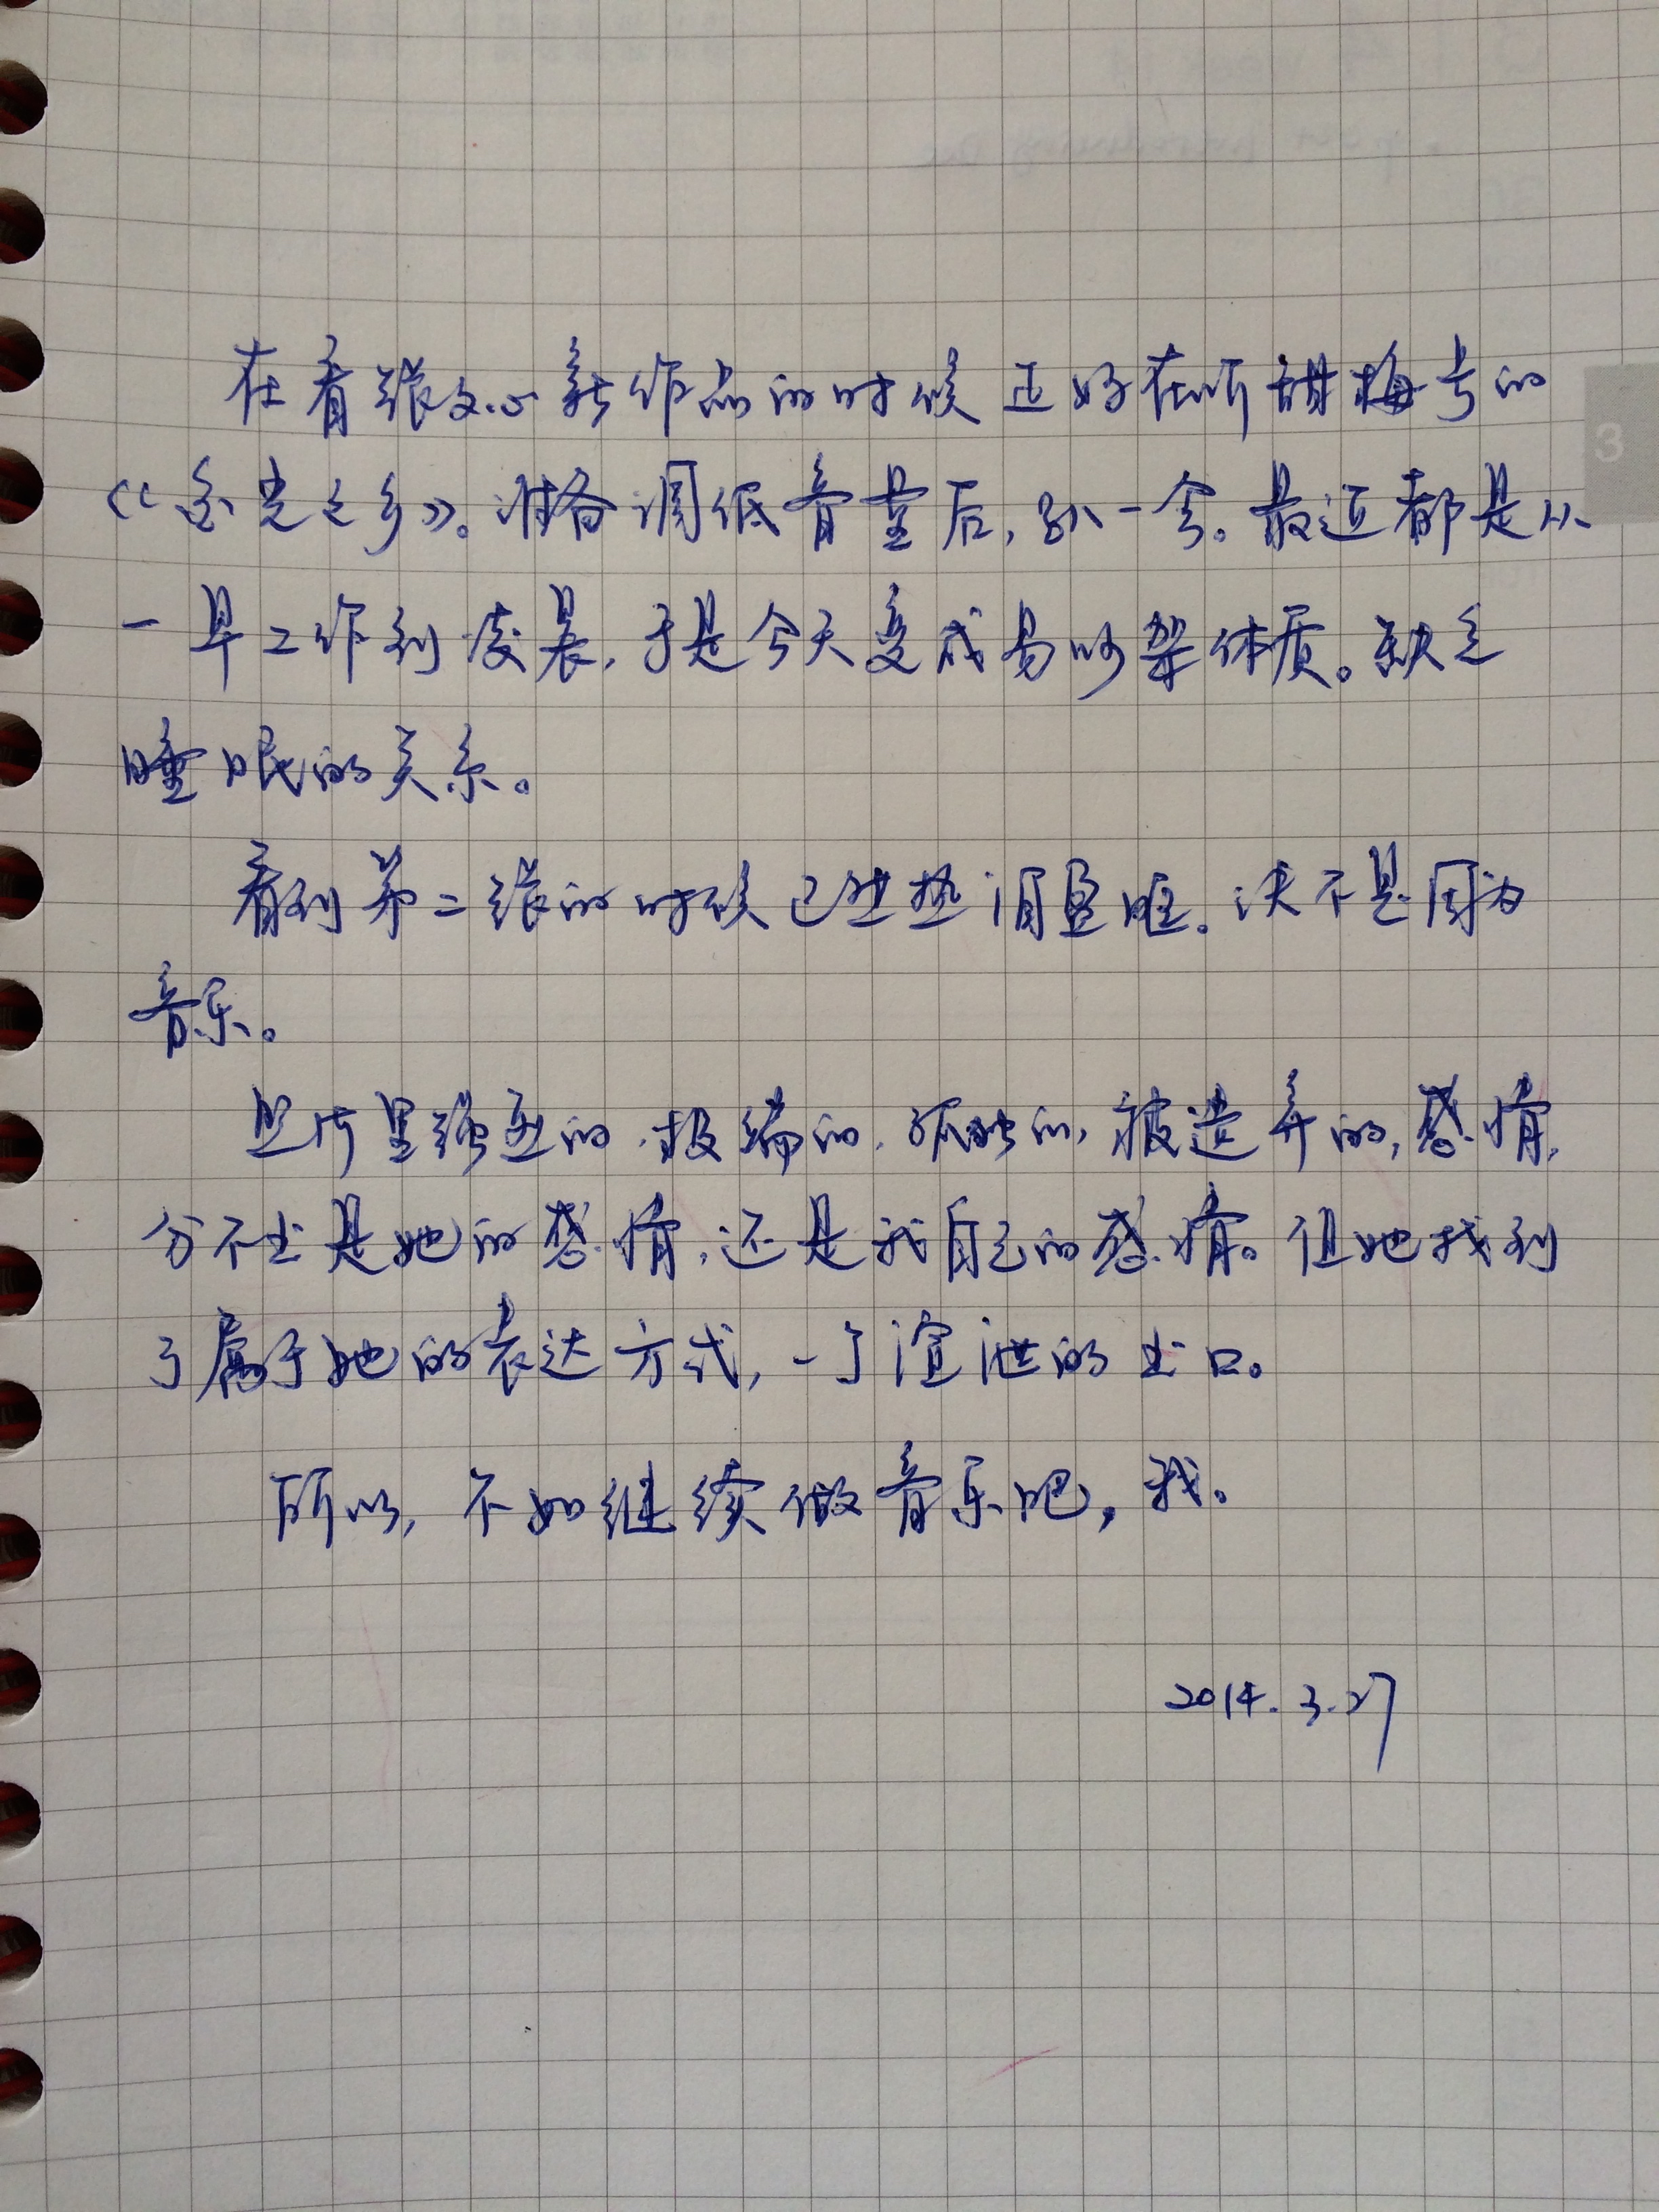 3
在看张文心新作品的时候正好在听甜梅号的
《金光之乡》。准备调低音量后,趴一会。最近都是从
一早工作到凌晨,于是今天变成易吵架体质。缺乏
睡眠的关系。
看到第二张的时候已然热泪盈眶。决不是因为
音乐。
照片里强烈的,极端的,孤独的,被遗弃的,感情,
分不出是她的感情,还是我自己的感情。但她找到
了属于她的表达方式,一个渲泄的出口。
所以,不如继续做音乐吧,我。
2014.3.27